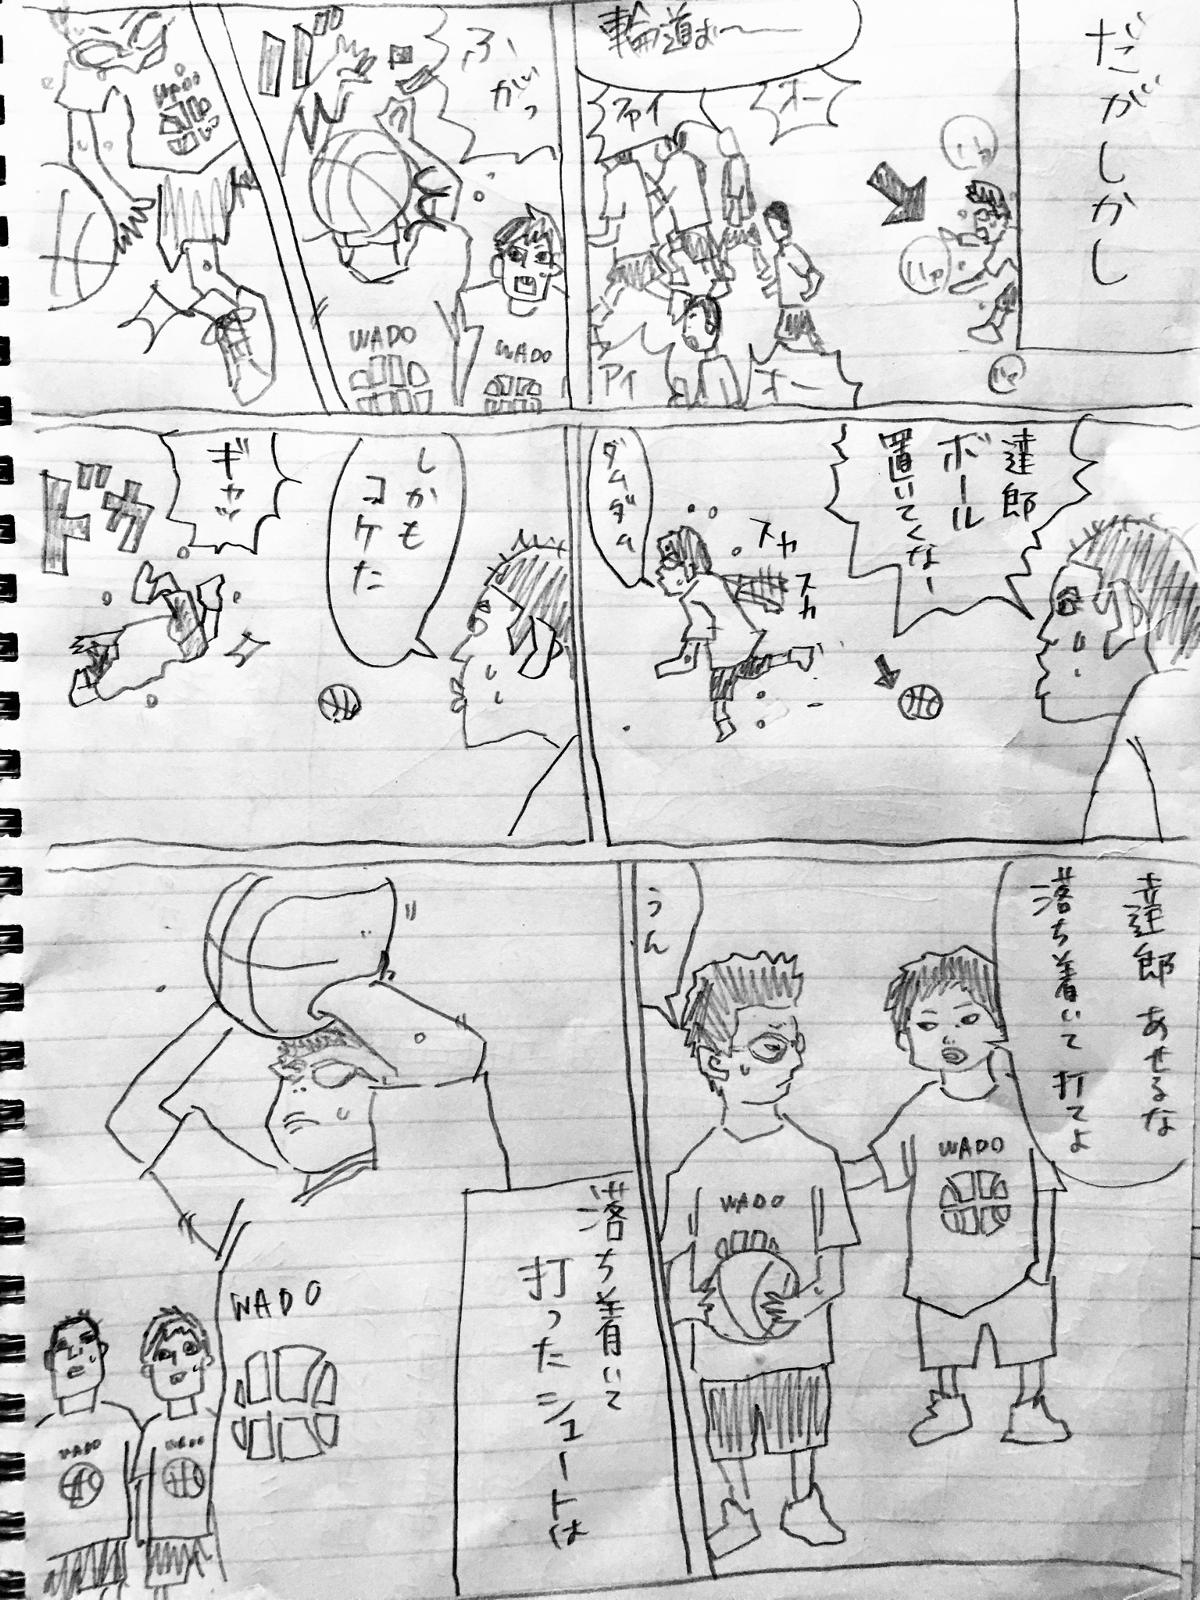 だがしかし
輪道ぉ〜
ファイ
オー
アイ
オー
ふがっ
WADO
WADO
WADO
達郎
ボール
置いてくなー
ダムダム
スカ
スカ
しかも
コケた
ギャッ
ドサッ
達郎 あせるな
落ち着いて 打てよ
うん
WADO
WADO
落ち着いて
打ったシュートは
WADO
WADO
WADO